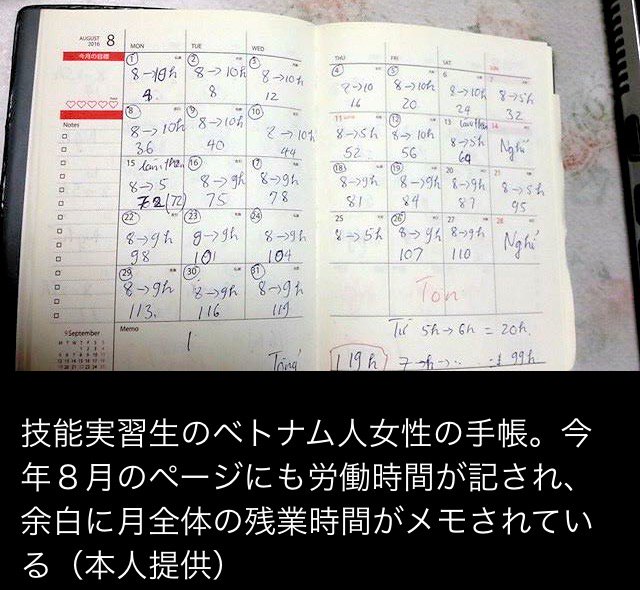 AUGUST
2016 8
MON TUE WED THU FRI SAT SUN
今月の目標
Notes
1 2 3 4 5 6 7
8→10h 8→10h 8→10h 8→10 8→10h 8→10h 8→5h
8 12 16 20 24 32
8 9 10 11 12 13 làm thêm 14
8→10h 8→10h 8→10h 8→5h 8→10h 8→5h Nghỉ
36 40 44 52 56 64
15 làm thêm 16 17 18 19 20 21
8→5 8→9h 8→9h 8→9h 8→9h 8→9h 8→5h
72 (72) 75 78 81 84 87 95
22 23 24 25 26 27 28
8→9h 8→9h 8→9h 8→5h 8→9h 8→9h Nghỉ
98 101 104 107 110
29 30 31
8→9h 8→9h 8→9h
113 116 119
9 September
Memo
Từ 5h→6h = 20h
Tổng 119h
99h
技能実習生のベトナム人女性の手帳。今
年８月のページにも労働時間が記され、
余白に月全体の残業時間がメモされてい
る（本人提供）